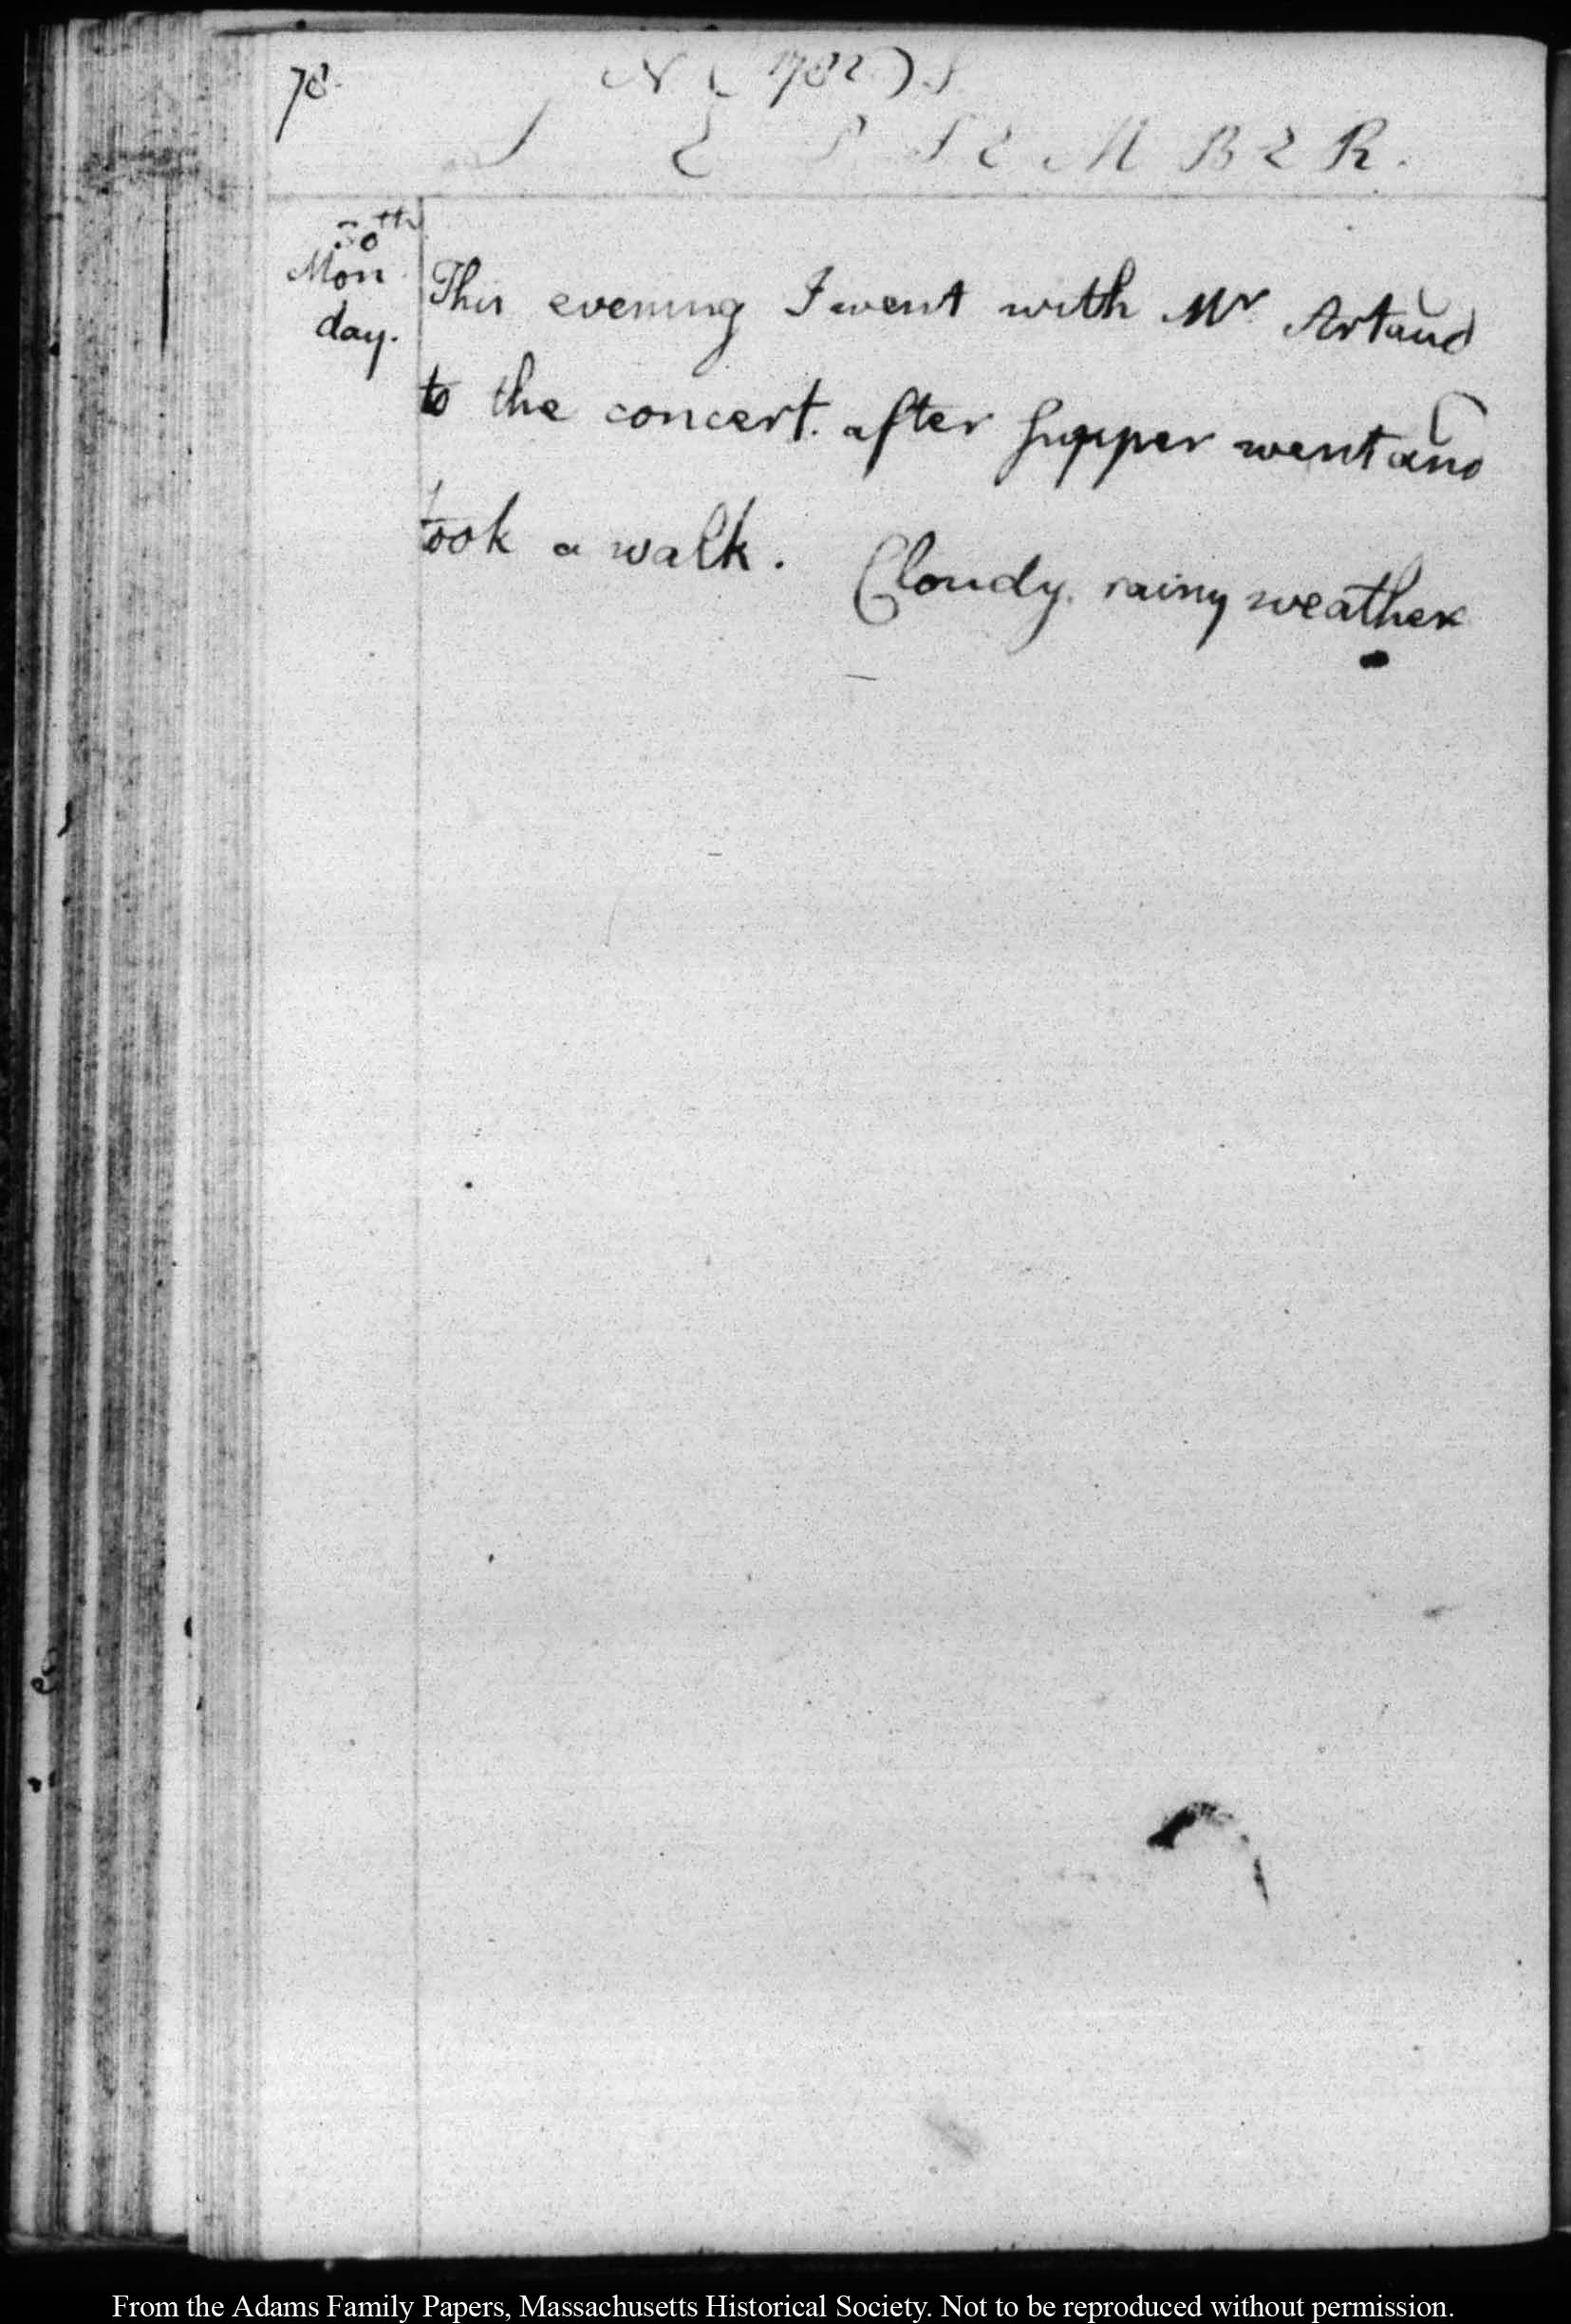 78.
N (1782.) S
SEPTEMBER.
30th
Mon
day.
This evening I went with Mr. Artaud
to the concert. after supper went and
took a walk. Cloudy, rainy weather
From the Adams Family Papers, Massachusetts Historical Society. Not to be reproduced without permission.